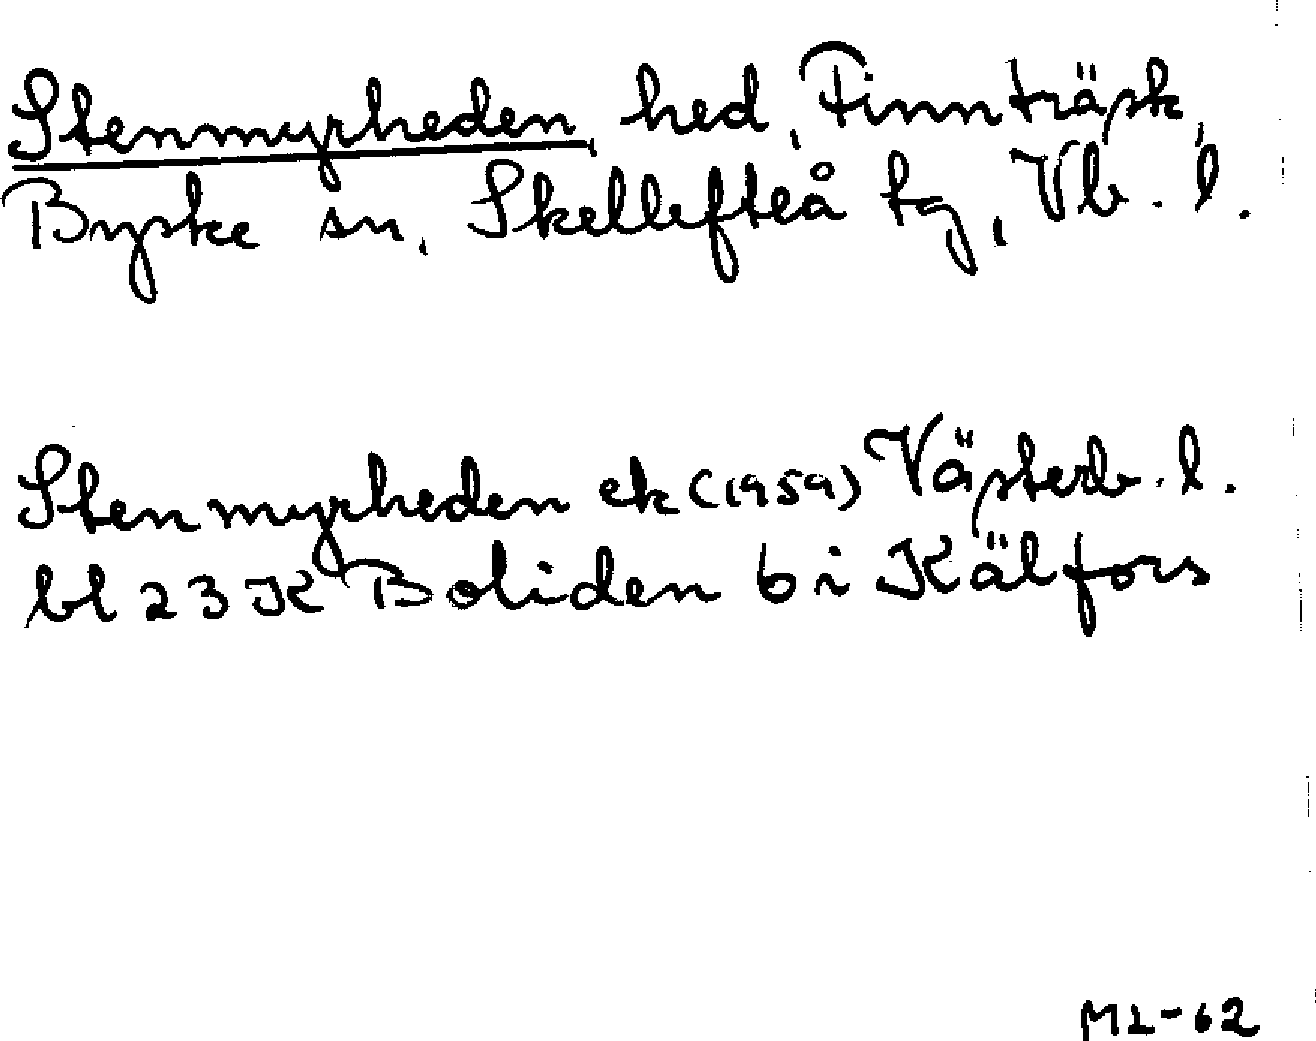 Stenmyrheden, hed, Finnträsk,
Byske sn, Skellefteå tg, Vb. l.
Stenmyrheden ek (1959) Västerb. l.
bl 23 K Boliden b i Kälfors
ML-62